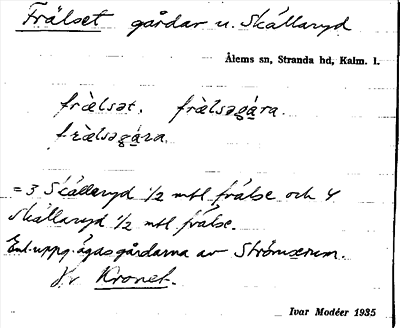 Frälset gårdar u. Skällaryd
Ålems sn, Stranda hd, Kalm. l.
frælsət, frælsəgára.
frælsəgára
= 3 Skälleryd 1/2 mtl frälse och 4
Skällaryd 1/2 mtl frälse.
Enl. uppg. ägas gårdarna av Strömserum.
Jfr Kronet.
Ivar Modéer 1935